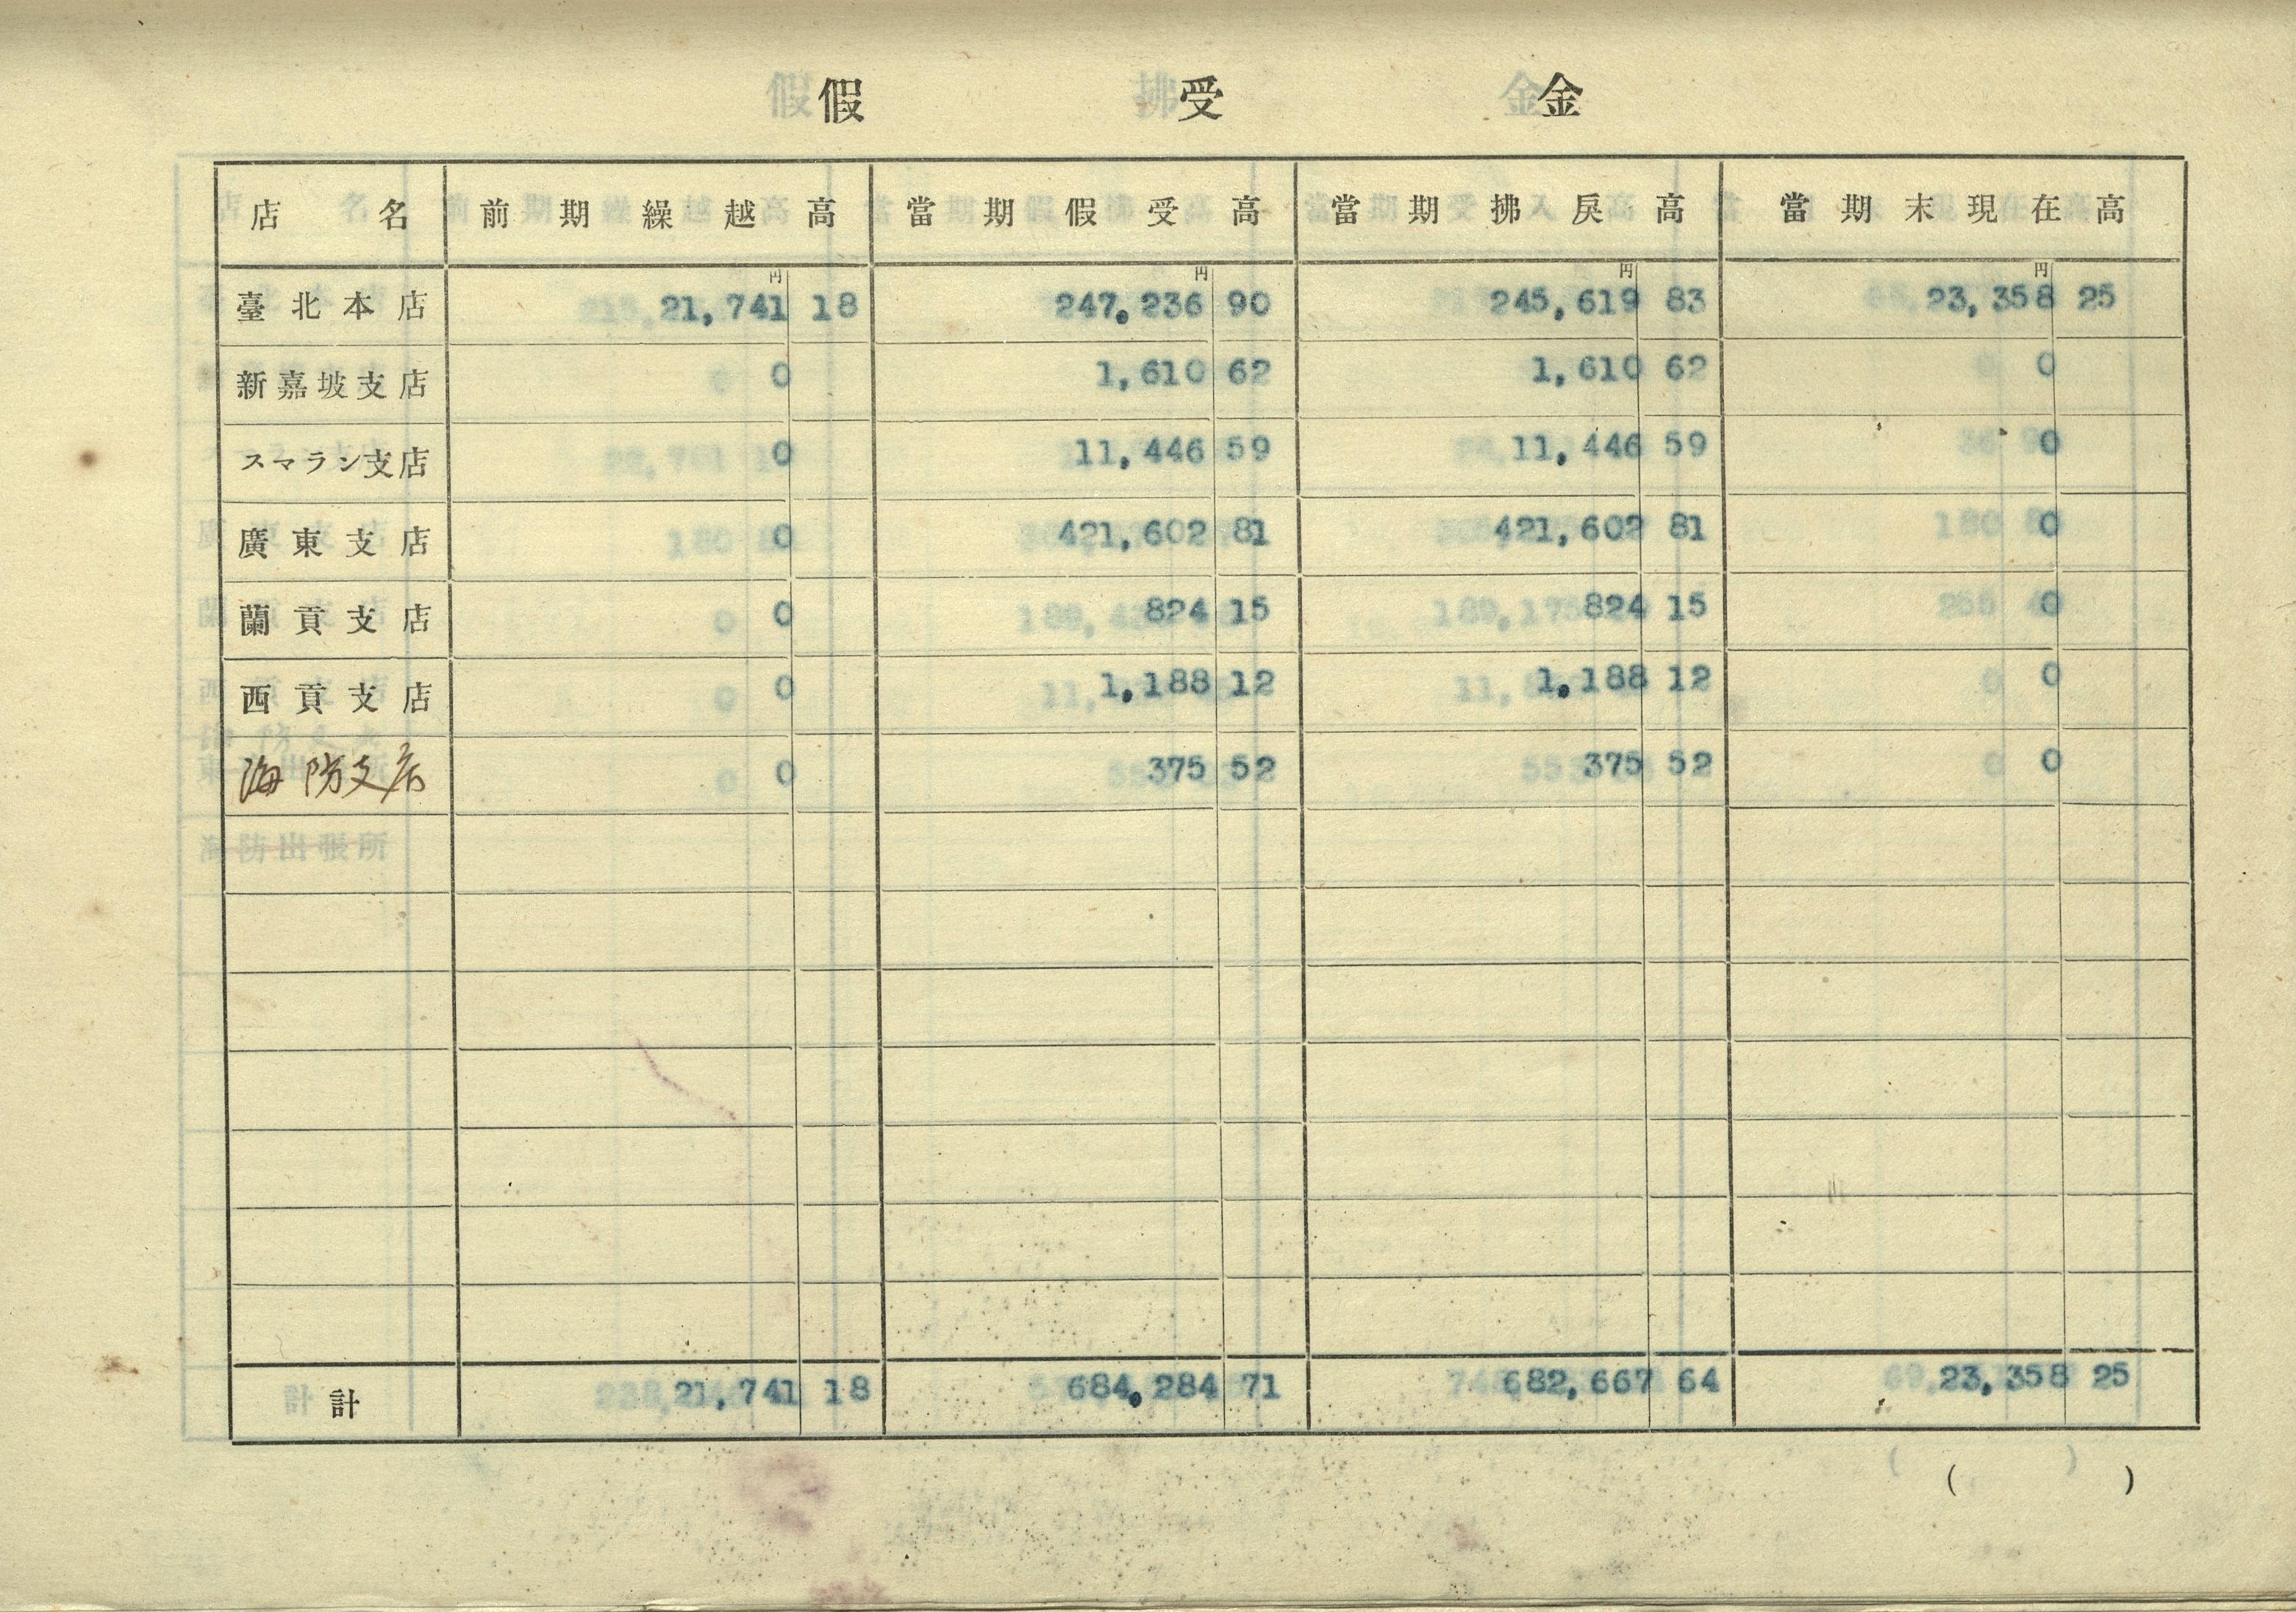 假 受 金
店名 前期繰越高 當期假受高 當期拂戾高 當期末現在高
円 円 円 円
臺北本店 21,741 18 247,236 90 245,619 83 23,358 25
新嘉坡支店 0 1,610 62 1,610 62 0
スマラン支店 0 11,446 59 11,446 59 0
廣東支店 0 421,602 81 421,602 81 0
蘭貢支店 0 824 15 824 15 0
西貢支店 0 1,188 12 1,188 12 0
海防支店 0 375 52 375 52 0
計 21,741 18 684,284 71 682,667 64 23,358 25
( )